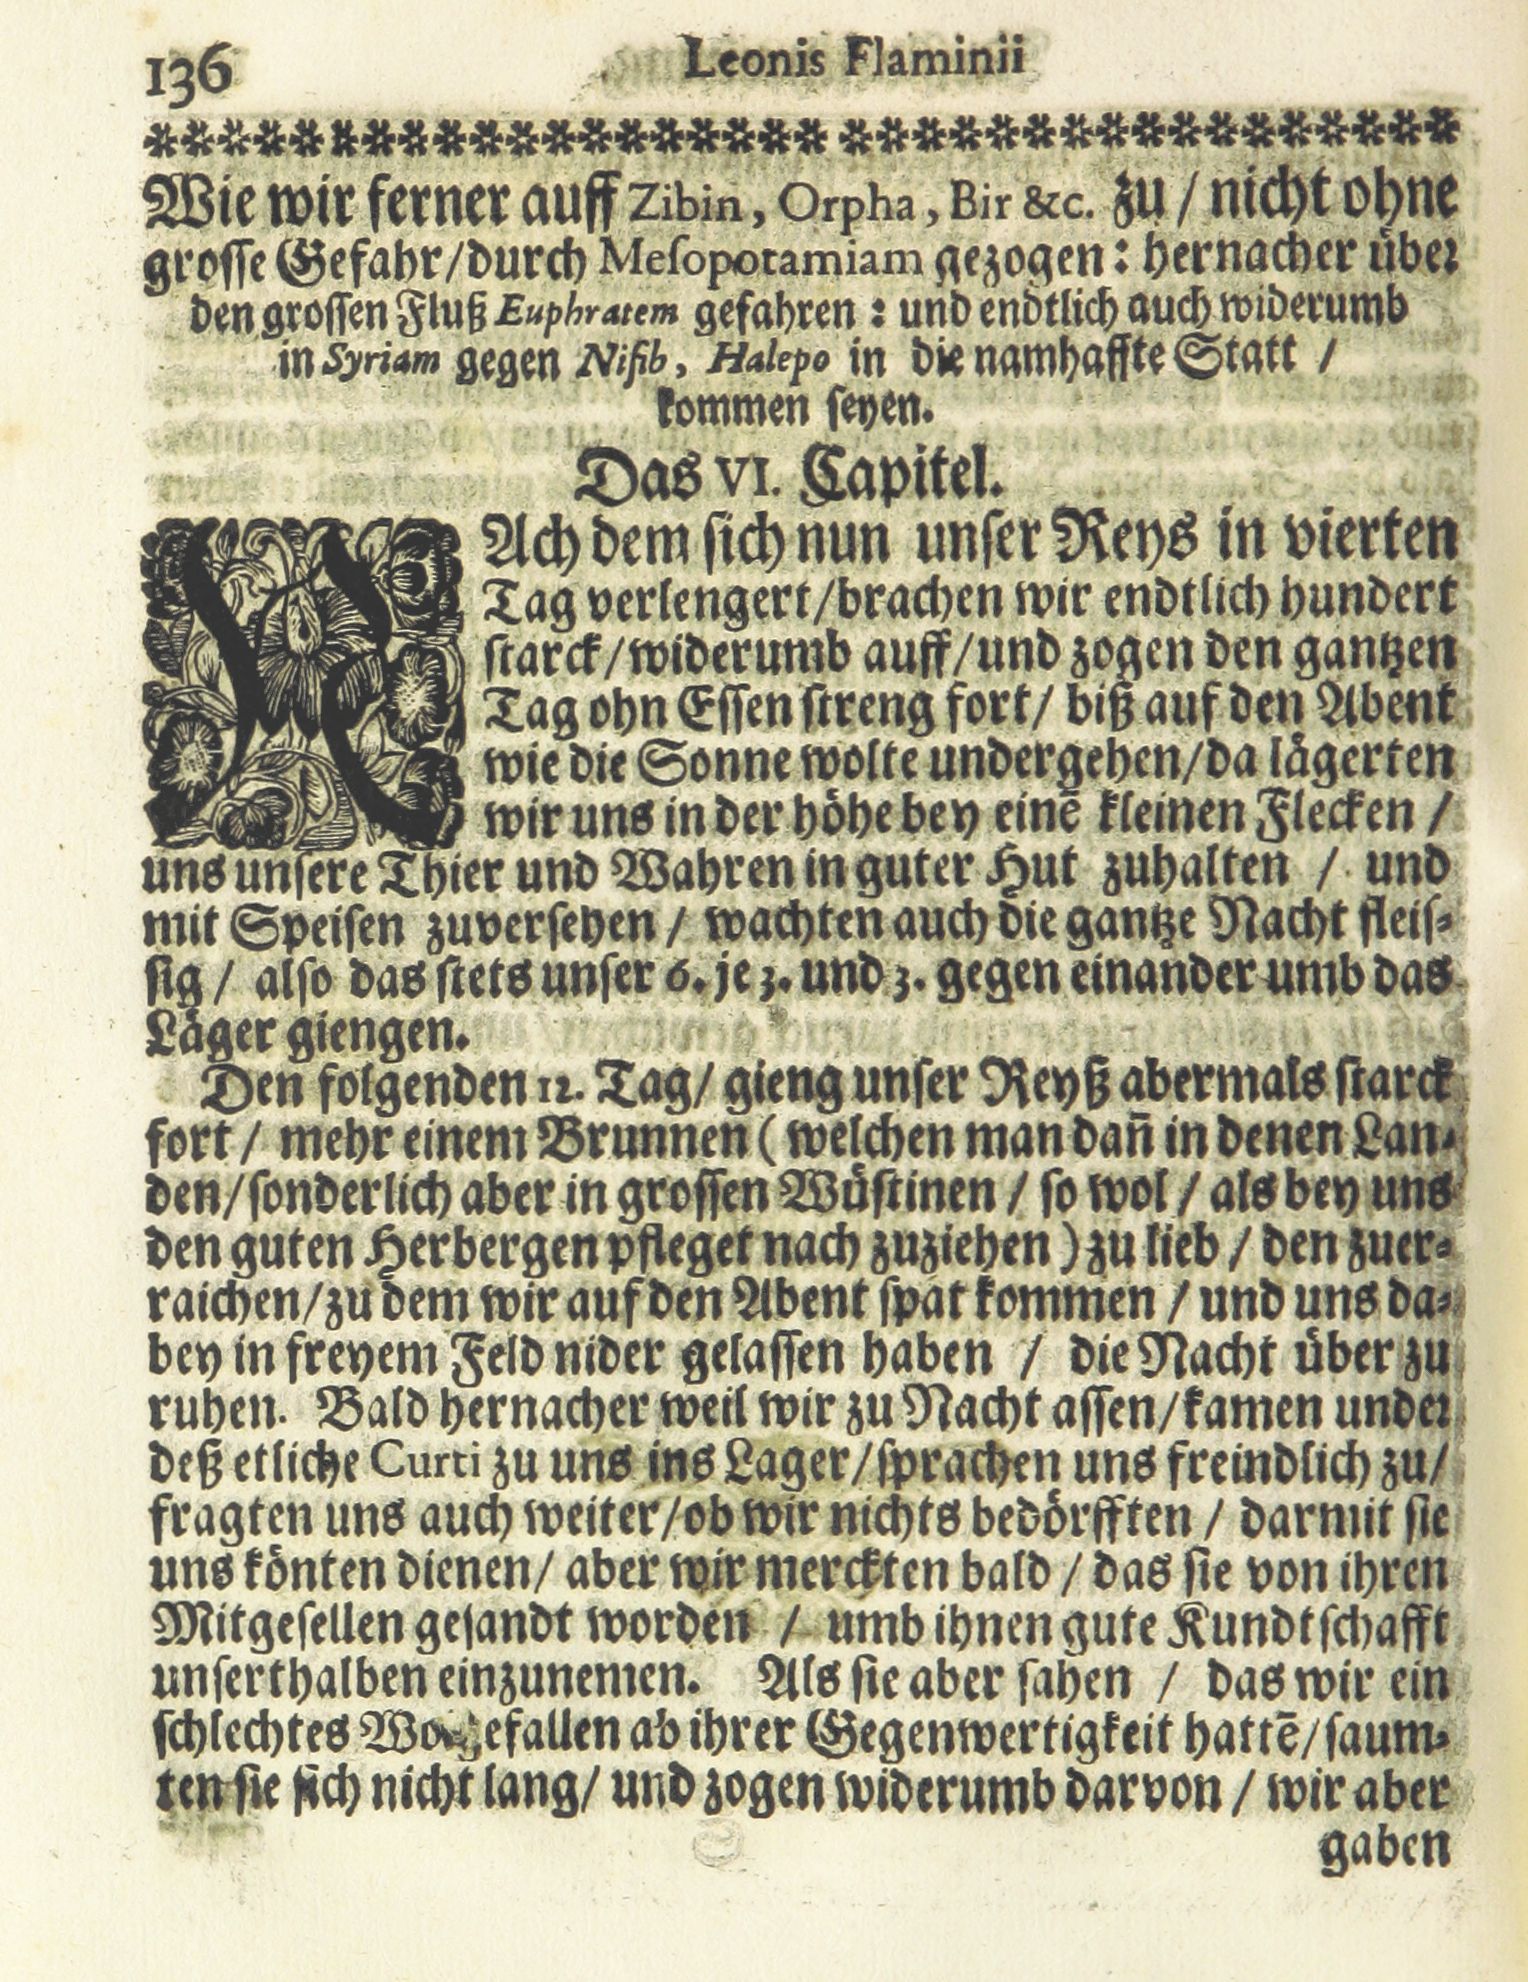 136 Leonis Flaminii
Wie wir ferner auff Zibin, Orpha, Bir &c. zu / nicht ohne
grosse Gefahr/durch Meſopotamiam gezogen: hernacher über
den groſſen Fluß Euphratem gefahren: und endtlich auch widerumb
in Syriam gegen Niſib, Halepo in die namhaffte Statt /
kommen ſeyen.
Das VI. Capitel.
NAch dem ſich nun unſer Reys in vierten
Tag verlengert/brachen wir endtlich hundert
ſtarck/widerumb auff/und zogen den gantzen
Tag ohn Eſſen ſtreng fort/ biß auf den Abent
wie die Sonne wolte undergehen/da lägerten
wir uns in der höhe bey einē kleinen Flecken /
uns unſere Thier und Wahren in guter Hut zuhalten / und
mit Speiſen zuverſehen / wachten auch die gantze Nacht fleiſ-
ſig / alſo das ſtets unſer 6. je 3. und 3. gegen einander umb das
Läger giengen.
Den folgenden 12. Tag/ gieng unſer Reyß abermals ſtarck
fort / mehr einem Brunnen ( welchen man dañ in denen Lan-
den/ſonderlich aber in groſſen Wüſtinen / ſo wol / als bey uns
den guten Herbergen pfleget nach zuziehen ) zu lieb / den zuer-
raichen/zu dem wir auf den Abent ſpat kommen / und uns da-
bey in freyem Feld nider gelaſſen haben / die Nacht über zu
ruhen. Bald hernacher weil wir zu Nacht aſſen/kamen under
deß etliche Curti zu uns ins Lager/ſprachen uns freindlich zu/
fragten uns auch weiter/ob wir nichts bedörfften / darmit ſie
uns könten dienen/ aber wir merckten bald / das ſie von ihren
Mitgeſellen geſandt worden / umb ihnen gute Kundtſchafft
unſerthalben einzunemen. Als ſie aber ſahen / das wir ein
ſchlechtes Wolgefallen ab ihrer Gegenwertigkeit hattē/ſaum-
ten ſie ſich nicht lang/ und zogen widerumb darvon / wir aber
gaben